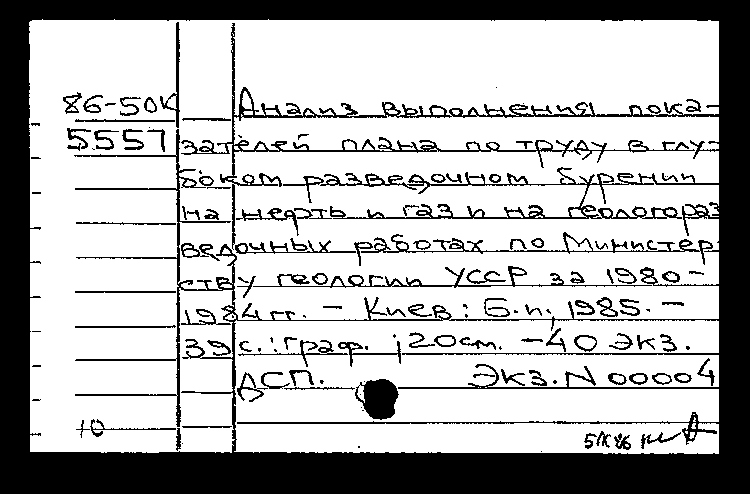 86-50К Анализ выполнения пока-
5557 зателей плана по труду в глу-
боком разведочном бурении
на нефть и газ и на геологораз
ведочных работах по Министер
ству геологии УССР за 1980-
1984 гг. - Киев: Б.и, 1985. -
39 с.: граф. ; 20 см. - 40 экз.
ДСП. Экз. N 00004
10